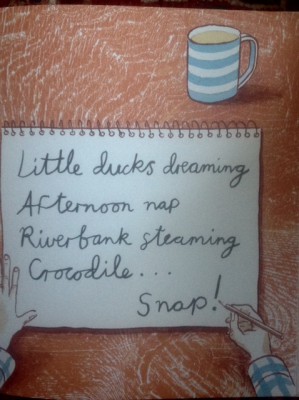 Little ducks dreaming
Afternoon nap
Riverbank steaming
Crocodile...
Snap!